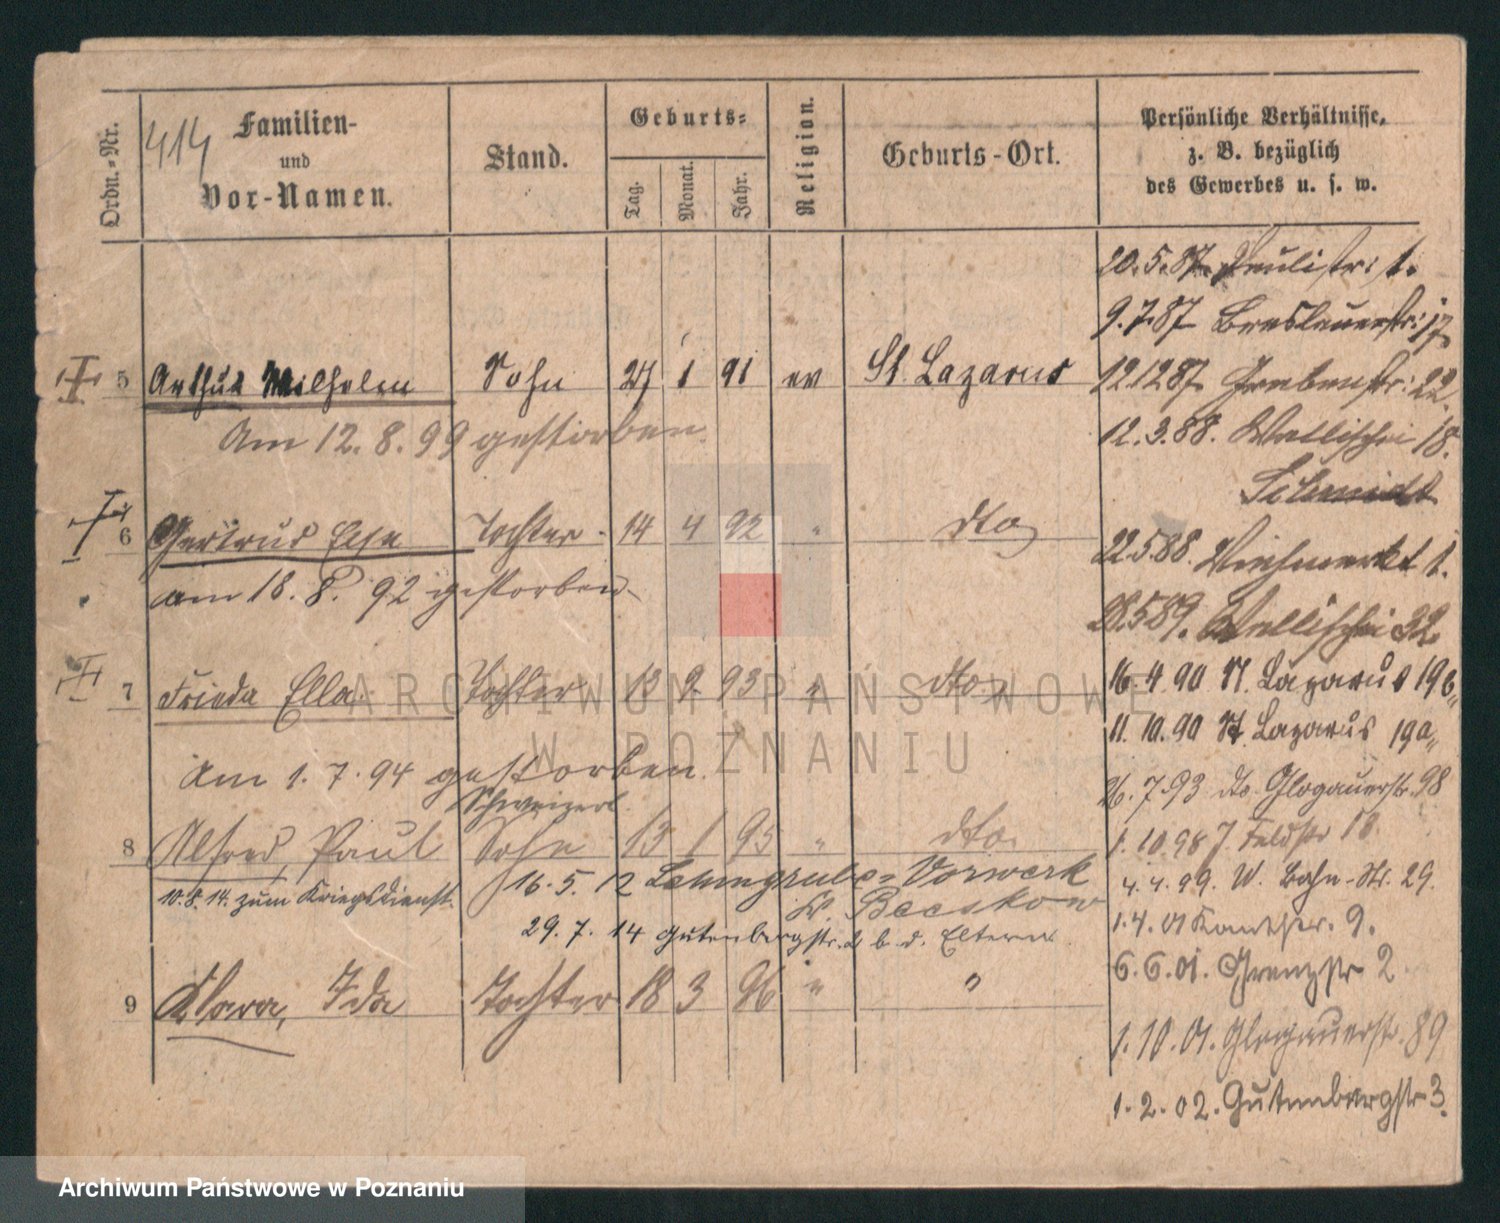 Ordn.-Nr.
414
Familien-
und
Vor-Namen.
Stand.
Geburts-
Tag.
Monat.
Jahr.
Religion.
Geburts-Ort.
Persönliche Verhältnisse,
z. B. bezüglich
des Gewerbes u. s. w.
20.5.87 Paulistr: 1.
9.7.87 Breslauerstr: 17
12.12.87 Grabenstr: 22.
12.3.88. Wallischei 18.
Schmidt
22.5.88. Viehmarkt 1.
28.5.89. Wallischei 32.
16.4.90 St. Lazarus 19b
11.10.90 St. Lazarus 19a
26.7.93 dto. Glogauerstr. 98
1.10.98 Feldstr 18.
4.4.99. W. Bahn-Str. 29.
1.4.01 Kantstr. 9.
6.6.01. Grenzstr 2
1.10.01. Glogauerstr. 89
1.2.02. Gutenbergstr 3.
5 Arthur Wilhelm Sohn 27 1 91 ev St. Lazarus
Am 12.8.99 gestorben.
6 Gertrud Else Tochter 14 4 92 " dto
am 18.8.92 gestorben
7 Frieda Ella Tochter 13 9. 93 " dto.
Am 1.7.94 gestorben.
Schweizerl.
8 Alfred, Paul Sohn 13 1 95 " dto.
10.8.14. zum Kriegsdienst. 16.5.12 Lehmgrube-Vorwerk
Kr. Beeskow
29.7.14 Gutenbergstr. 2 b. d. Eltern.
9 Klara, Ida Tochter 18 3 96 " "
ARCHIWUM PAŃSTWOWE
W POZNANIU
Archiwum Państwowe w Poznaniu